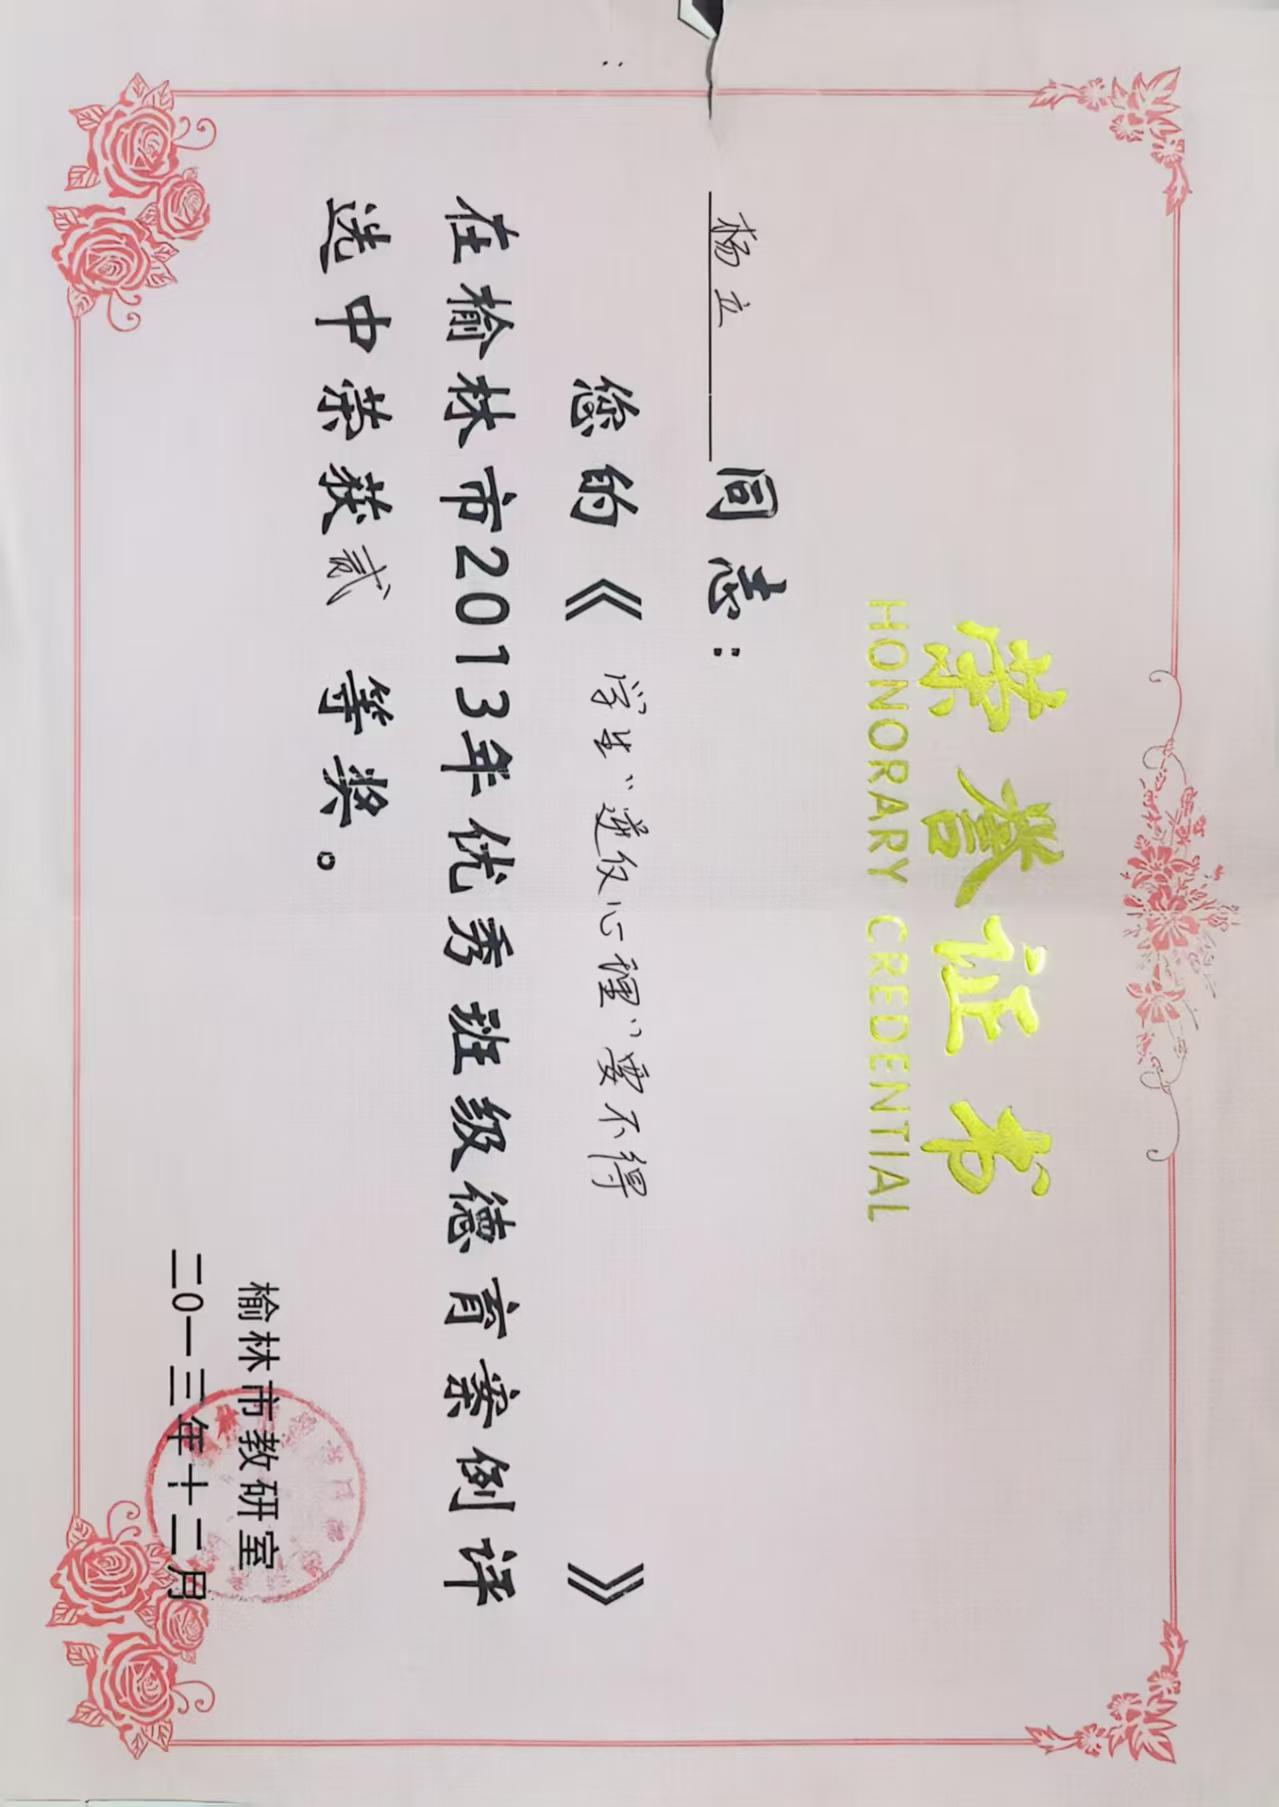 荣誉证书
HONORARY CREDENTIAL
杨立同志：
您的《学生“逆反心理”要不得》
在榆林市2013年优秀班级德育案例评
选中荣获贰等奖。
榆林市教研室
二〇一三年十二月